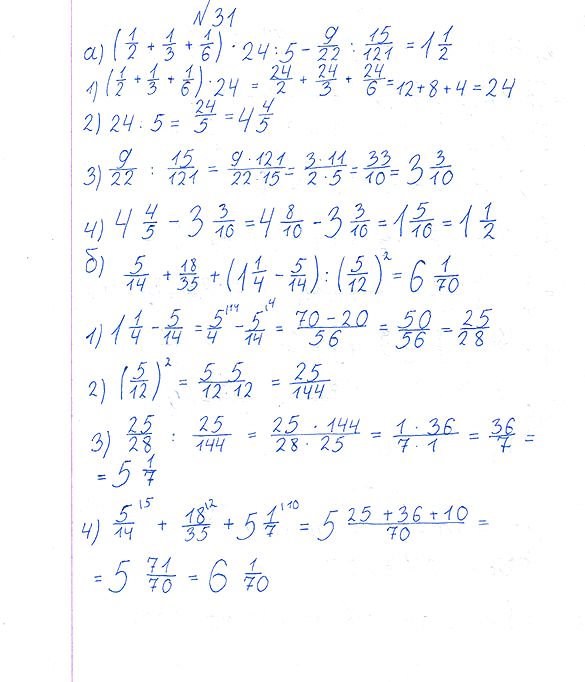 №31
а) (1/2 + 1/3 + 1/6) · 24 : 5 - 9/22 : 15/121 = 1 1/2
1) (1/2 + 1/3 + 1/6) · 24 = 24/2 + 24/3 + 24/6 = 12 + 8 + 4 = 24
2) 24 : 5 = 24/5 = 4 4/5
3) 9/22 : 15/121 = 9·121/22·15 = 3·11/2·5 = 33/10 = 3 3/10
4) 4 4/5 - 3 3/10 = 4 8/10 - 3 3/10 = 1 5/10 = 1 1/2
б) 5/14 + 18/35 + (1 1/4 - 5/14) : (5/12)² = 6 1/70
1) 1 1/4 - 5/14 = 5/4 ^14 - 5/14 ^4 = 70-20/56 = 50/56 = 25/28
2) (5/12)² = 5·5/12·12 = 25/144
3) 25/28 : 25/144 = 25·144/28·25 = 1·36/7·1 = 36/7 =
= 5 1/7
4) 5/14 ^5 + 18/35 ^2 + 5 1/7 ^10 = 5 25+36+10/70 =
= 5 71/70 = 6 1/70